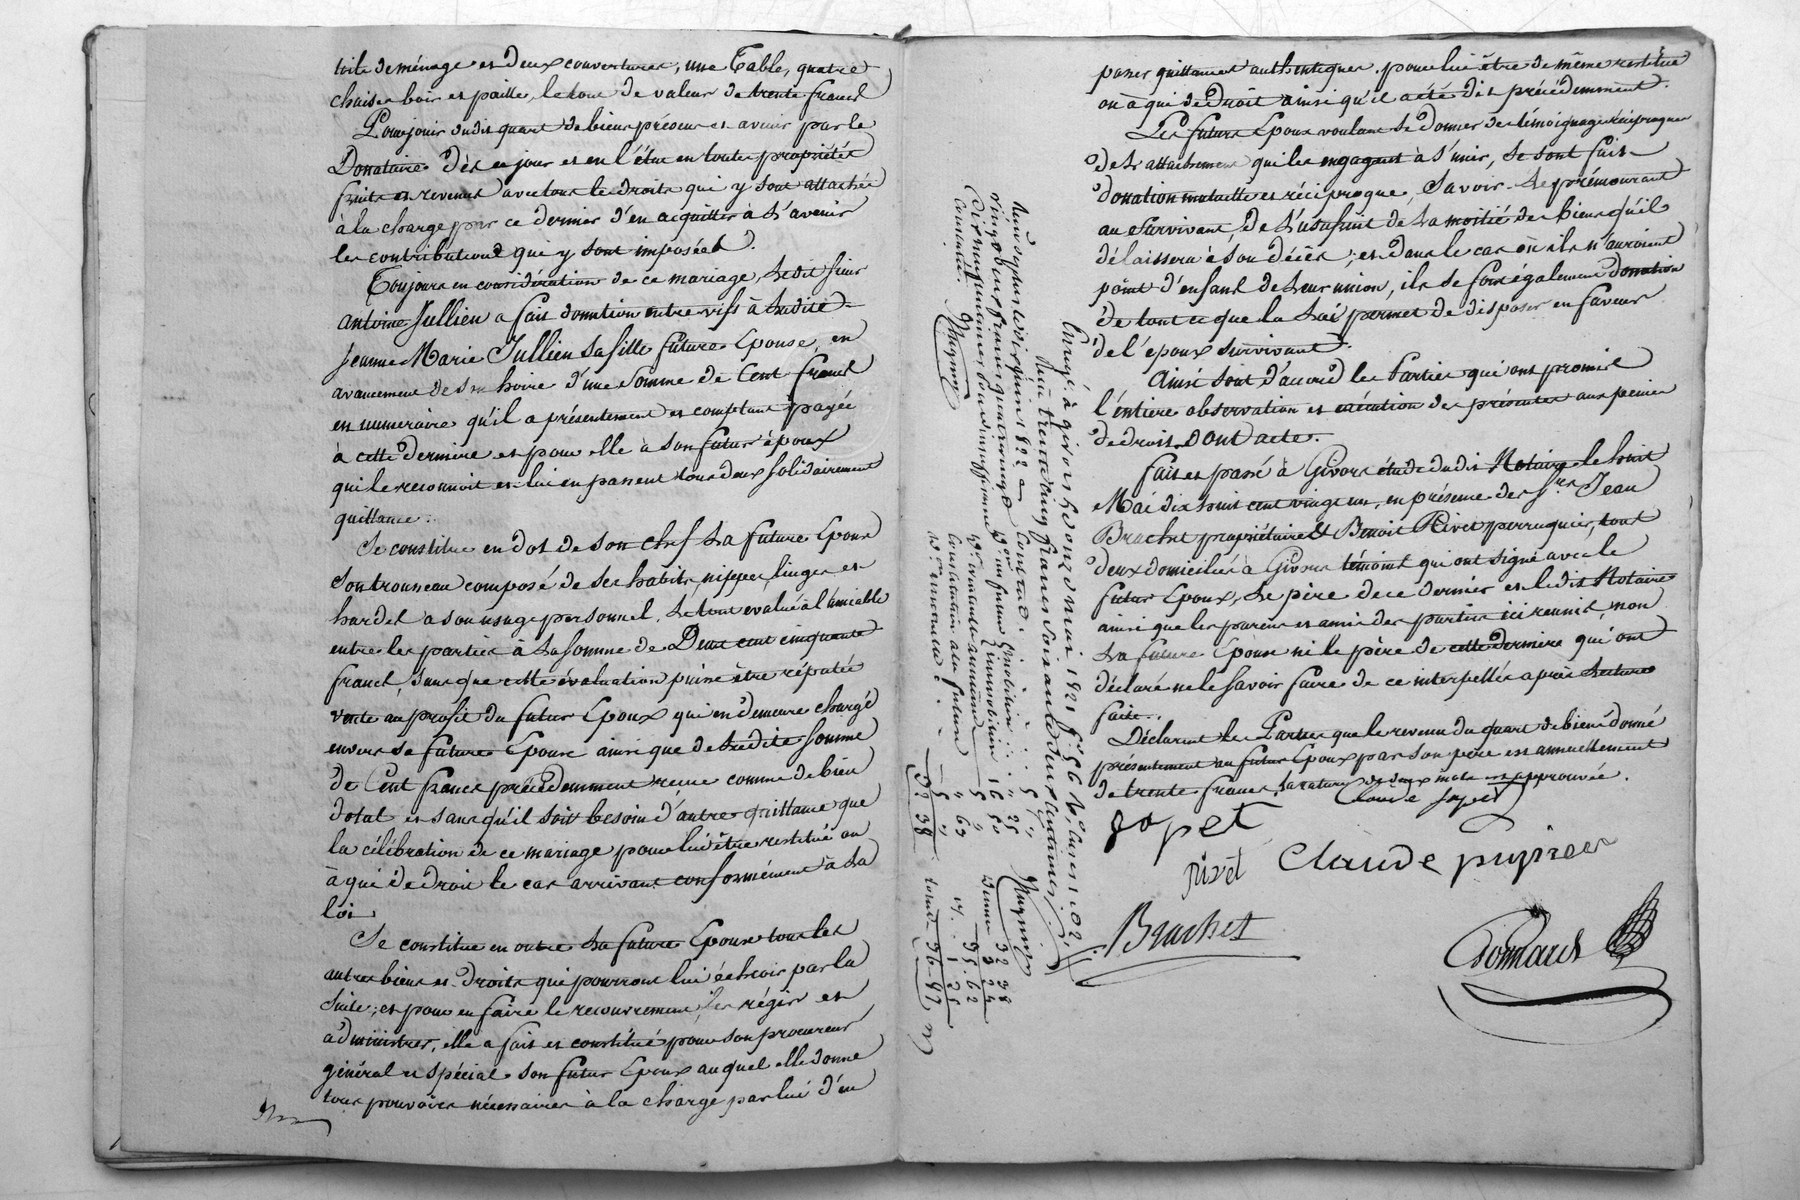 toile de ménage et deux couvertures, une Table, quatre
chaises bois et paille, le tout de valeur de trente francs
Pour jouir dudit quart de biens présens et avenir par le
Donataire dès ce jour et en l'état en toutes propriétés
fruits et revenus avec tous les droits qui y sont attachés
à la charge par ce dernier d'en acquitter à l'avenir
les contributions qui y sont imposées.
Toujours en considération de ce mariage, ledit sieur
antoine Jullien a fait donation entre vifs à ladite
Jeanne Marie Jullien sa fille future Epouse, en
avancement de son hoire d'une somme de Cent francs
en numéraire qu'il a présentement et comptant payée
à cette dernière et pour elle à son futur époux
qui le reconnoit et lui en passent tous deux solidairement
quittance.
Se constitue en dot de son chef La future Epouse
son trousseau composé de ses habits, nippes, linges et
hardes à son usage personnel, le tout evalué à l'amiable
entre les parties à la somme de Deux cent cinquante
francs, sans que cette évaluation puisse être réputée
vente au profit du futur Epoux qui en demeure chargé
envers sa future Epouse ainsi que de ladite somme
de Cent francs précédemment reçue comme de bien
dotal et sans qu'il soit besoin d'autre quittance que
la célébration de ce mariage pour lui être restitué ou
à qui de droit le cas arrivant conformément à La
loi.
Se constitue en outre La future Epouse tous les
autres biens et Droits qui pourront lui échoir par la
suite; et pour en faire le recouvrement, les régir et
administrer, elle a fait et constitué pour son procureur
général et spécial son futur Epoux auquel elle donne
tous pouvoirs nécessaires à la charge par lui d'en
passer quittances authentiques pour lui être de même restitué
ou à qui de Droit ainsi qu'il a été dit précédemment.
Les futurs Epoux voulant se donner des témoignages réciproques
de l'attachement qui les engagent à s'unir, se sont fait
donation mutuelle et réciproque, Savoir Le prémourant
au survivant, de l'usufruit de La moitié des biens qu'il
délaissera à son décès; et dans le cas où ils n'auroient
point d'enfans de leur union, ils se font également donation
de tout ce que la Loi permet de disposer en faveur
de l'époux survivant.
Ainsi sont d'accord les Parties qui ont promis
l'entière observation et exécution des présentes aux peines
de droit, Dont acte.
Fait et passé à Givors étude dudit Notaire le huit
Mai dix huit cent vingt un, en présence des Srs Jean
Brachet propriétaire & Benoit Rivet perruquier, tous
deux domiciliés à Givors témoins qui ont signé avec le
futur Epoux, Le père de ce dernier et ledit Notaire
ainsi que les parens et amis des parties ici réunis, non
La future Epouse ni le père de cette dernière qui ont
déclaré ne le savoir faire de ce interpellés après Lecture
faite.
Déclarent les Parties que le revenu du quart de biens donné
présentement au futur Epoux par son père est annuellement
de trente francs. La rature de deux mots est approuvée.
Claude Jopet
Jopet
rivet Claude pupier
Brachet
Enregé à givors le onze mai 1821 fo 56
Reçu trente cinq francs soixante deux centimes
Reçu depuis le dix juin 1822
vingt deux francs quatrevingt
dix neuf centimes
Contrat. 5 "